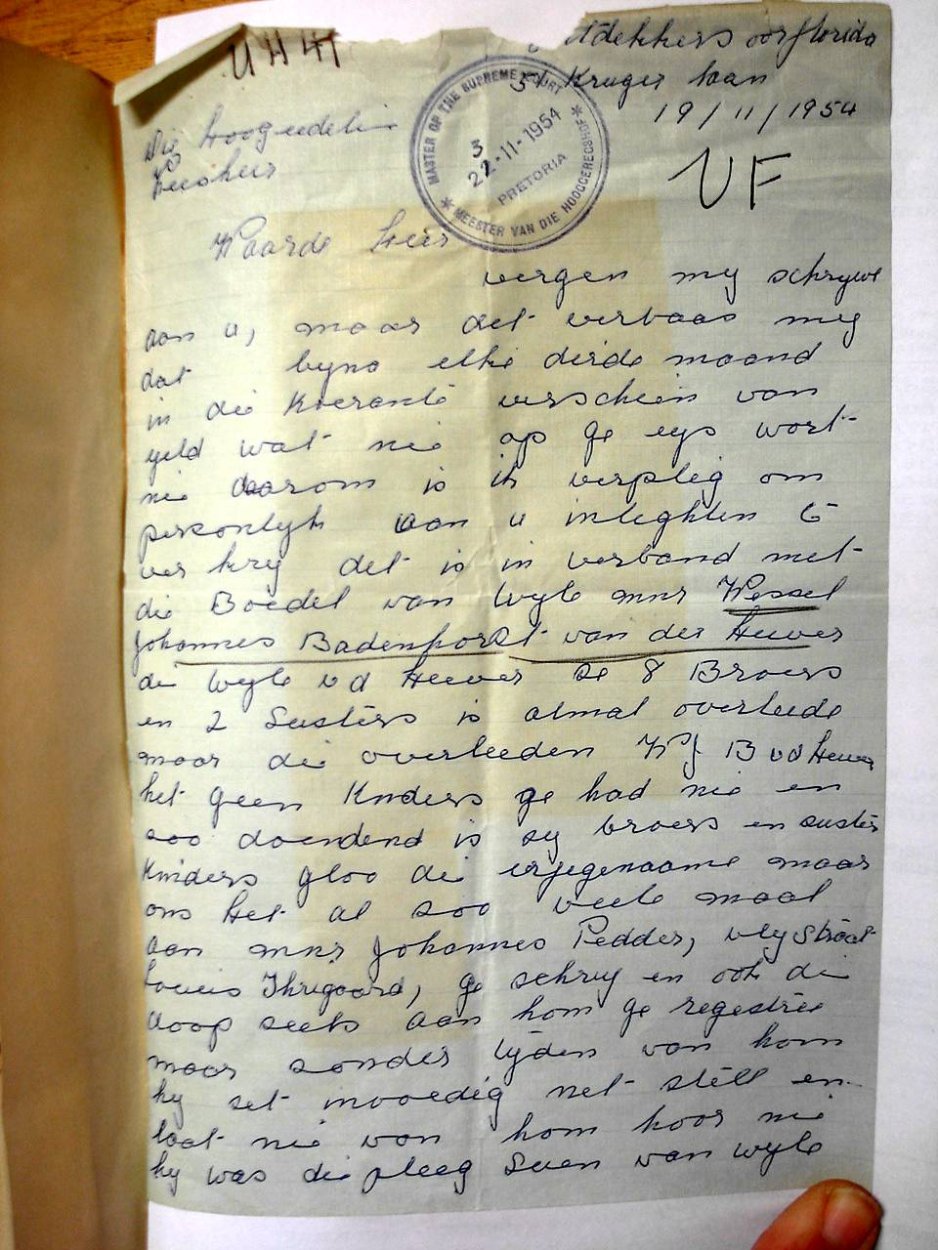 UH 41
tdekkers oorflorida
51 Kruger laan
19/11/1954
MASTER OF THE SUPREME COURT
22-11-1954
PRETORIA
MEESTER VAN DIE HOOGGEREGSHOF
Die
VF
Waarde heer
vergen my schrywe
aan u, maar det verbaas my
dat byna elke derde maand
in die koerante verschein van
geld wat nie op ge eys wort
nie daarom is ik verpleg om
personlyk aan u inleghten te
ver kry det is in verband met
die Boedel van Wyle mnr Wessel
Johannes Badenhorst van der Heever
die wyle vd Heever se 8 Broers
en 2 Susters is almal overleede
maar die overleeden WJ B vd Heever
het geen Kinders ge had nie en
soo doendend is sy broers en susters
Kinders gloo die erfegenaame maar
ons het al soo veele maal
aan mnr Johannes Pedder, vlystraat
Louis Thregaard, ge schryf en ook die
doop seels aan hom ge regestree
maar sonder tyden van hom
hy set mooedig net stell en
laat nie van hom hoor nie
hy was die pleeg Seen van wyle